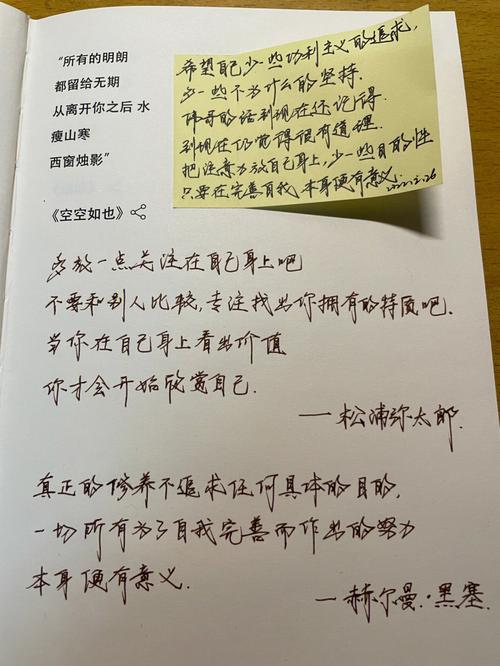 “所有的明朗
都留给无期
从离开你之后 水
瘦山寒
西窗烛影”
《空空如也》
希望自己少一些功利主义的追求，
少一些不为什么的坚持.
伟哥的话到现在还记得.
到现在仍觉得很有道理.
把注意力放自己身上，少一些目的性
只要在完善自我，本身便有意义.
多放一点关注在自己身上吧
不要和别人比较，专注找出你拥有的特质吧.
当你在自己身上看出价值
你才会开始欣赏自己.
——松浦弥太郎.
真正的修养不追求任何具体的目的，
一切所有为了自我完善而作出的努力
本身便有意义.
—赫尔曼·黑塞